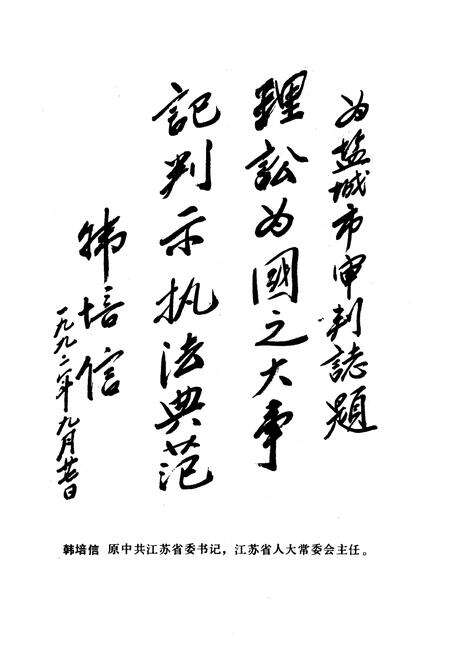 为盐城市审判誌題
理訟为國之大事
記判示执法典范
韩培信
一九九二年九月廿日
韩培信 原中共江苏省委书记，江苏省人大常委会主任。